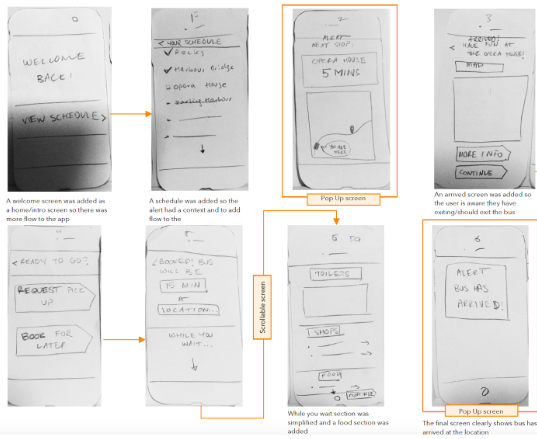 0
WELCOME
BACK!
VIEW SCHEDULE >
A welcome screen was added as
a home/intro screen so there was
more flow to the app
1
< YOUR SCHEDULE
Rocks
Harbour Bridge
Opera House
A schedule was added so the
alert had a context and to add
flow to the
2
ALERT
NEXT STOP:
OPERA HOUSE
5 MINS
Pop Up screen
3
ARRIVED!
< HAVE FUN AT
THE OPERA HOUSE!
MAP
MORE INFO
CONTINUE
An arrived screen was added so
the user is aware they have
exiting/should exit the bus
4
< READY TO GO?
REQUEST PICK
UP
BOOK FOR
LATER
5
< BOOKED! BUS
WILL BE
15 MIN
AT
LOCATION..
WHILE YOU
WAIT...
Scrollable screen
5
TOILETS
SHOPS
FOOD
While you wait section was
simplified and a food section was
added
6
ALERT
BUS HAS
ARRIVED!
Pop Up screen
The final screen clearly shows bus has
arrived at the location